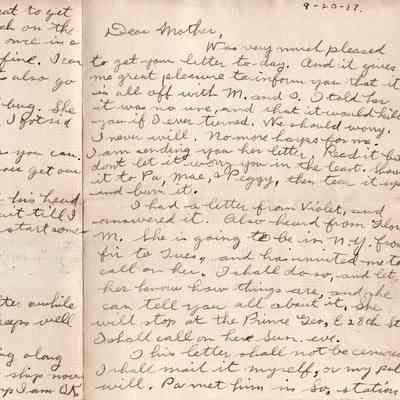 at to get
ch on the
once in a
fine. I can
s also go
bug. She
I got rid
s you can.
his head
it till I
start some
tter awhile
keeps well
ng along
ship now
I am OK
9-20-17.
Dear Mother,
Was very much pleased
to get your letter to-day. And it gives
me great pleasure to inform you that it
is all off with M. and I. I told her
it was no use, and that it would kill
you if I ever turned. We should worry.
I never will. No more for me.
I am sending you her letter. Read it but
dont let it worry you in the least. Show
it to Pa, Mae, & Peggy, then tear it up
and burn it.
I had a letter from Violet, and
answered it. Also heard from
M. She is going to be in N.Y. from
fri to Tues, and has invited me to
call on her. I shall do so, and let
her know how things are, and she
can tell you all about it. She
will stop at the Prince Geo, E 28th St
I shall call on her Sun. eve.
This letter shall not be censored
I shall mail it myself, or my pal
will. Pa met him in So. station